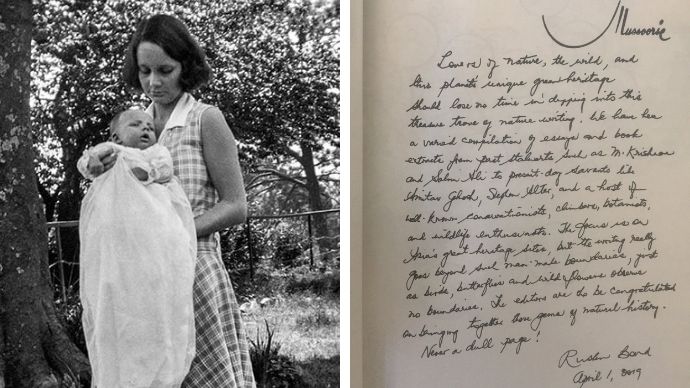 Mussoorie
Lovers of nature, the wild, and
this planet's unique green heritage
should lose no time in dipping into this
treasure trove of nature writing. We have here
a varied compilation of essays and book
extracts from past stalwarts such as M. Krishnan
and Salim Ali to present-day savants like
Amitav Ghosh, Stephen Alter, and a host of
well-known conservationists, climbers, botanists,
and wildlife enthusiasts. The focus is on
Asia's great heritage sites, but the writing really
goes beyond such man-made boundaries, just
as birds, butterflies and wild flowers observe
no boundaries. The editors are to be congratulated
on bringing together these gems of natural history.
Never a dull page!
Ruskin Bond
April 1, 2019